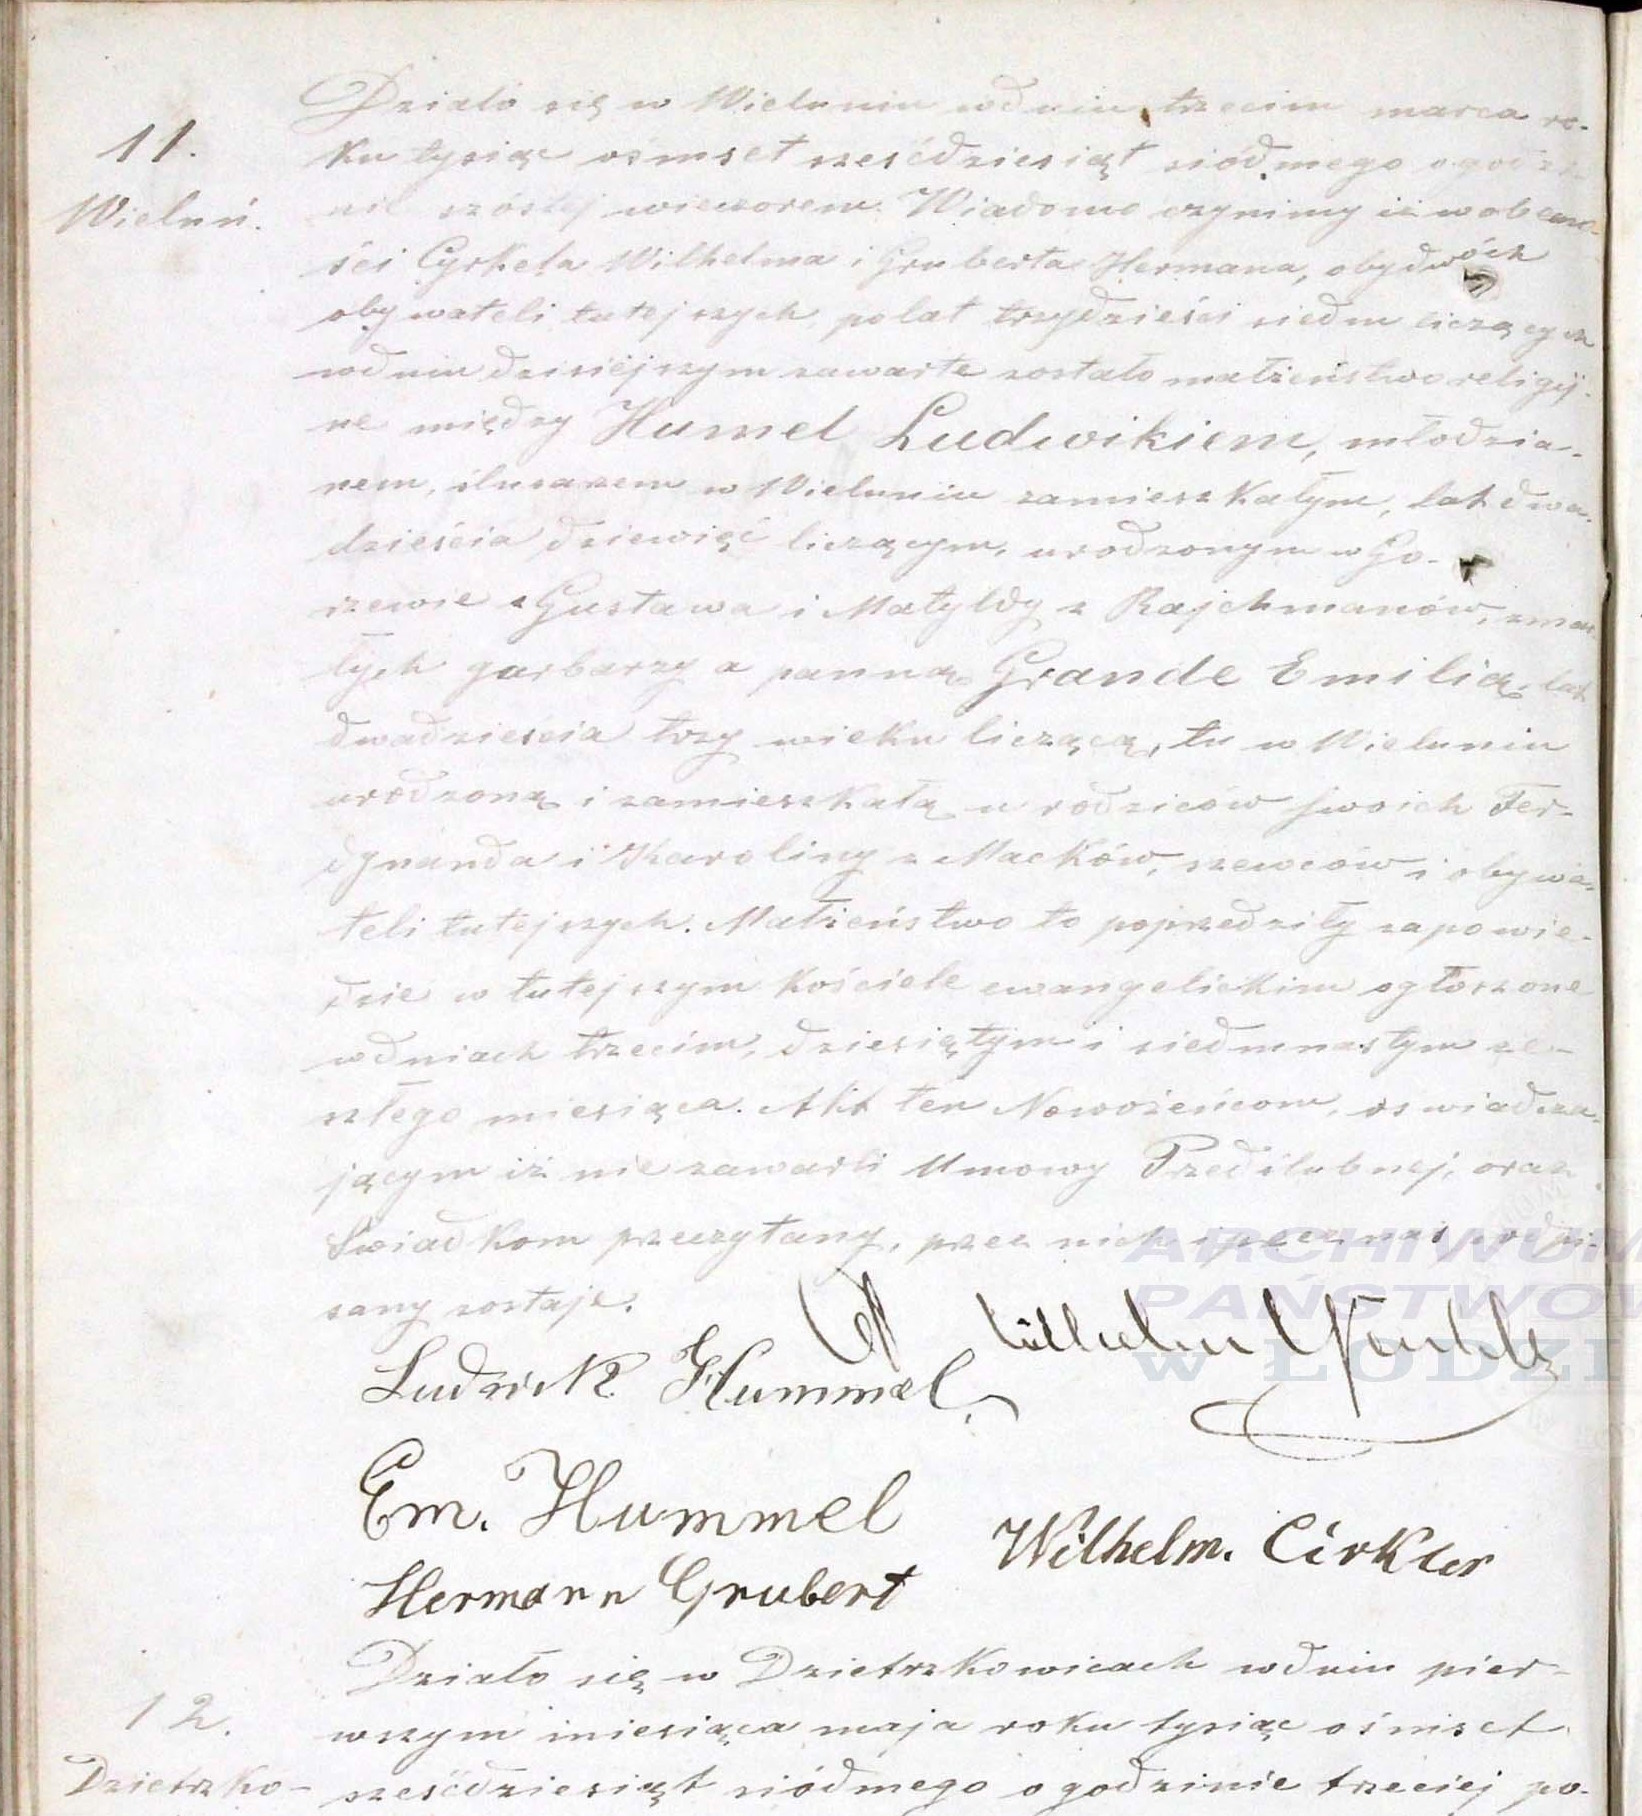 Działo się w Wieluniu w dniu trzecim marca ro-
11.
ku tysiąc ośmset sześćdziesiąt siódmego o godzi-
Wieluń.
nie szóstej wieczorem. Wiadomo czynimy iż w obecno-
ści Cyrkela Wilhelma i Gruberta Hermana, obydwóch
obywateli tutejszych, po lat trzydzieści siedm liczących
w dniu dzisiéjszym zawarte zostało małżeństwo religij-
ne między Humel Ludwikiem, młodzia-
nem, ślusarzem w Wieluniu zamieszkałym, lat dwa-
dzieścia dziewięć liczącym, urodzonym w Go-
szewie z Gustawa i Matyldy z Rajchmanów, zmar-
łych garbarzy a panną Grande Emilią, lat
dwadzieścia trzy wieku liczącą, tu w Wieluniu
urodzoną i zamieszkałą u rodziców swoich Fer-
dynanda i Karoliny z Macków, szewców i obywa-
teli tutejszych. Małżeństwo to poprzedziły zapowie-
dzie w tutejszym kościele ewangelickim ogłoszone
w dniach trzecim, dziesiątym i siedmnastym ze-
szłego miesiąca. Akt ten Nowożeńcom, oświadcza-
jącym iż nie zawarli Umowy Przedślubnej, oraz
Świadkom przeczytany, przez nich i przez nas podpi-
sany zostaje.
Ludwik Hummel.
Em. Hummel
Wilhelm. Cirkler
Hermann Grubert
Działo się w Dzietrzkowicach w dniu pier-
12.
wszym miesiąca maja roku tysiąc ośmset
Dzietrzko-
sześćdziesiąt siódmego o godzinie trzeciej po-
ARCHIWUM
PAŃSTWOW
W ŁODZI